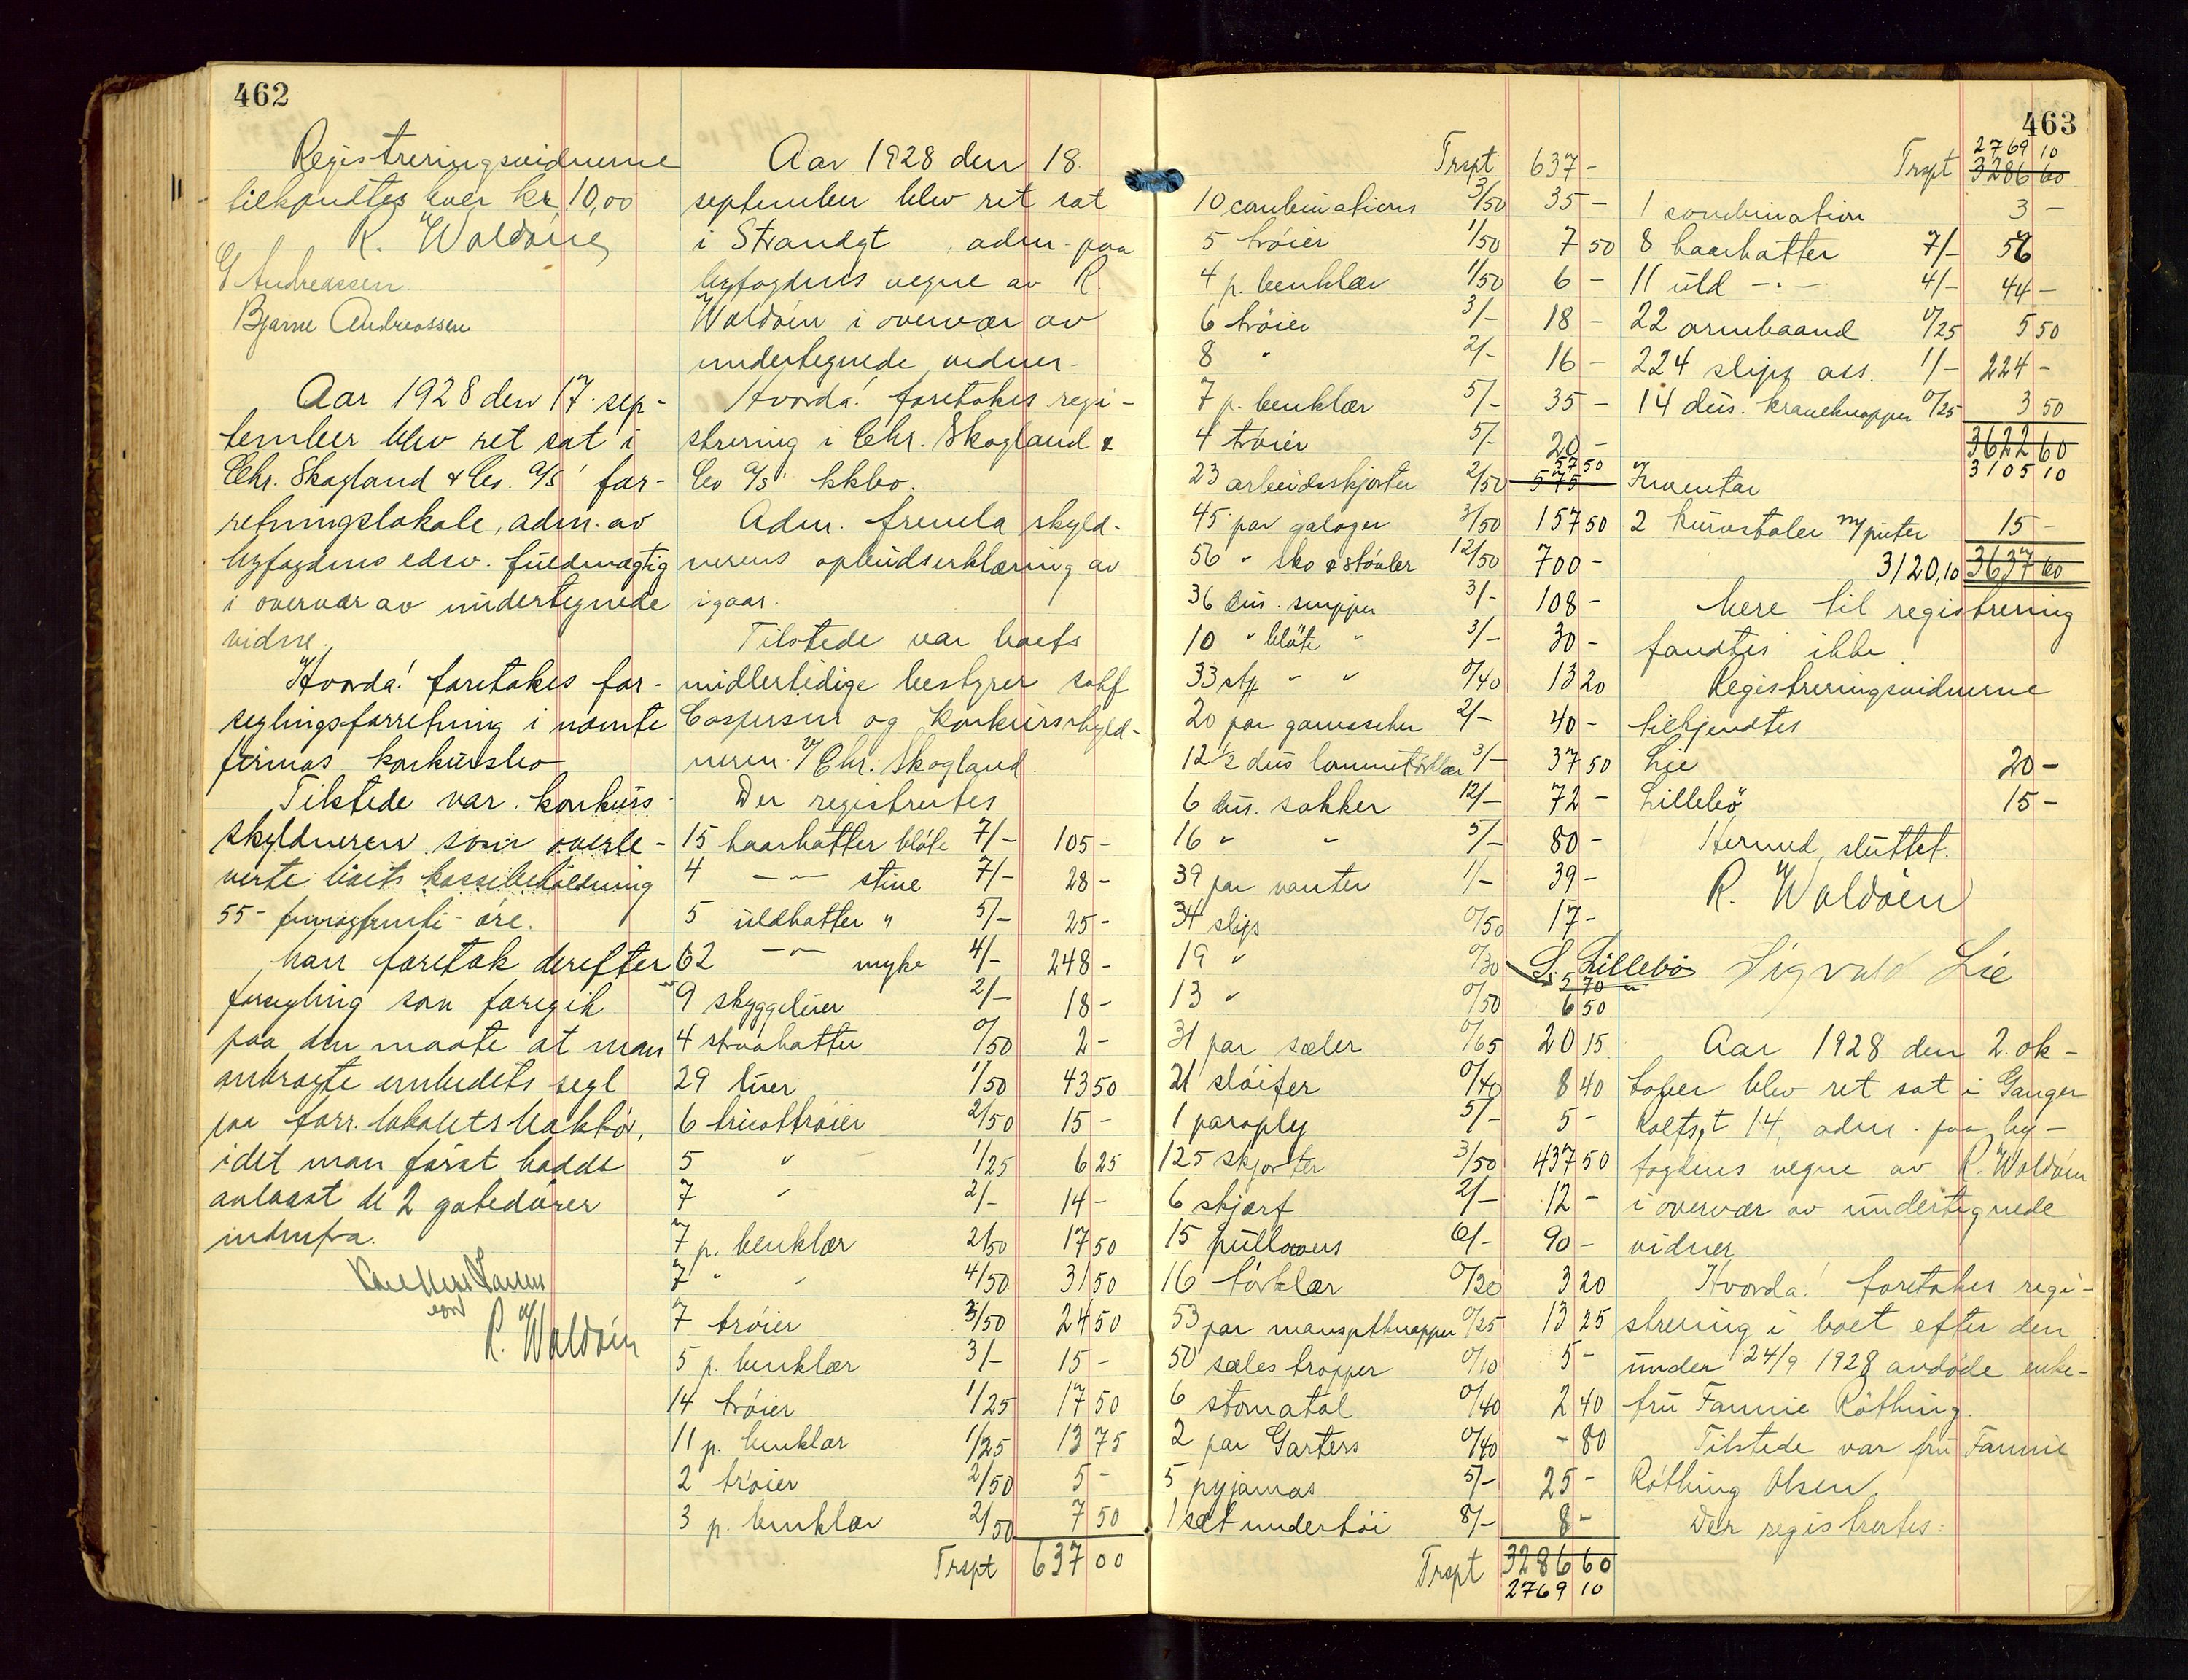 462
Registreringsvidnerne
tilkjendtes hver kr. 10,00
R. Waldøien
G Andreassen.
Bjarne Andreassen
Aar 1928 den 17. sep-
tember blev ret sat i
Chr. Skagland & Co. A/S' for-
retningslokale, adm. av
byfogdens edsv. fuldmægtig
i overvær av undertegnede
vidne.
Hvorda! foretokes for-
seglingsforretning i nævnte
firmas konkursbo
Tilstede var konkurs-
skyldneren som overle-
verte boets kassebeholdning
55 - femogfemti - øre.
Man foretok derefter
forsegling som foregik
paa den maate at man
anbragte embedets segl
paa forr. lokalets bakdør,
idet man først hadde
avlaast de 2 gatedører
indenfra.
R. Waldøien
Aar 1928 den 18.
september blev ret sat
i Strandgt , adm. paa
byfogdens vegne av R.
Waldøien i overvær av
undertegnede vidner.
Hvorda! foretokes regi-
strering i Chr. Skagland &
Co A/S' kkbo.
Adm. fremla skyld-
nerens opbudserklæring av
igaar.
Tilstede var boets
midlertidige bestyrer sakf
Caspersen og konkursskyld-
neren v/ Chr. Skagland
Der registrertes
15 haarhatter bløte 7/- 105 -
4 -"- stive 7/- 28 -
5 uldhatter " 5/- 25 -
62 -"- myke 4/- 248 -
9 skyggeluer 2/- 18 -
4 straahatter 0/50 2 -
29 luer 1/50 43 50
6 tricottrøier 2/50 15 -
5 " 1/25 6 25
7 " 2/- 14 -
7 p. benklær 2/50 17 50
7 " " 4/50 31 50
7 trøier 3/50 24 50
5 p. benklær 3/- 15 -
14 trøier 1/25 17 50
11 p. benklær 1/25 13 75
2 trøier 2/50 5 -
3 p. benklær 2/50 7 50
Trspt 637 00
463
Trspt 637 -
10 combinations 3/50 35 -
5 trøier 1/50 7 50
4 p. benklær 1/50 6 -
6 trøier 3/- 18 -
8 " 2/- 16 -
7 p. benklær 5/- 35 -
4 trøier 5/- 20 -
57 50
23 arbeidsskjorter 2/50 575 -
45 par galoger 3/50 157 50
56 " sko & støvler 12/50 700 -
36 dus. snipper 3/- 108 -
10 " bløte " 3/- 30 -
33 stk " " 0/40 13 20
20 par gamascher 2/- 40 -
12 1/2 dus lommetørklær 3/- 37 50
6 dus. sokker 12/- 72 -
16 " " 5/- 80 -
39 par vanter 1/- 39 -
34 slips 0/50 17 -
19 " 0/30 5 70
13 " 0/50 6 50
31 par sæler 0/65 20 15
21 sløifer 0/40 8 40
1 paraply 5/- 5 -
125 skjorter 3/50 437 50
6 skjærf 2/- 12 -
15 pullovers 6/- 90 -
16 tørklær 0/20 3 20
53 par mansjetknapper 0/25 13 25
50 sælestropper 0/10 5 -
6 stomatol 0/40 2 40
2 par Garters 0/40 - 80
5 pyjamas 5/- 25 -
1 sæt undertøi 8/- 8 -
Trspt 3286 60
2769 10
2769 10
Trspt 3286 60
1 combination 3 -
8 haarhatter 7/- 56
11 uld -"- 4/- 44 -
22 armbaand 0/25 5 50
224 slips ass. 1/- 224 -
14 dus. kraveknapper 0/25 3 50
3622 60
3105 10
Inventar
2 kurvstoler m/puter 15 -
3120,10 3637 60
Mere til registrering
fandtes ikke
Registreringsvidnerne
tilkjendtes
Lie 20 -
Lillebø 15 -
Hermed sluttet.
R. Waldøien
S. Lillebø Sigvald Lie
Aar 1928 den 2. ok-
tober blev ret sat i Ganger
Rolfsgt 14, adm. paa by-
fogdens vegne av R. Waldøien
i overvær av undertegnede
vidner
Hvorda! foretokes regi-
strering i boet efter den
under 24/9 1928 avdøde enke-
fru Fannie Røthing.
Tilstede var fru Fannie
Røthing Olsen.
Der registrertes: